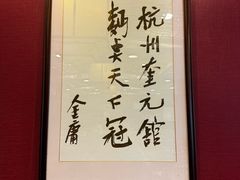 杭州奎元館
麪奌天下冠
金庸